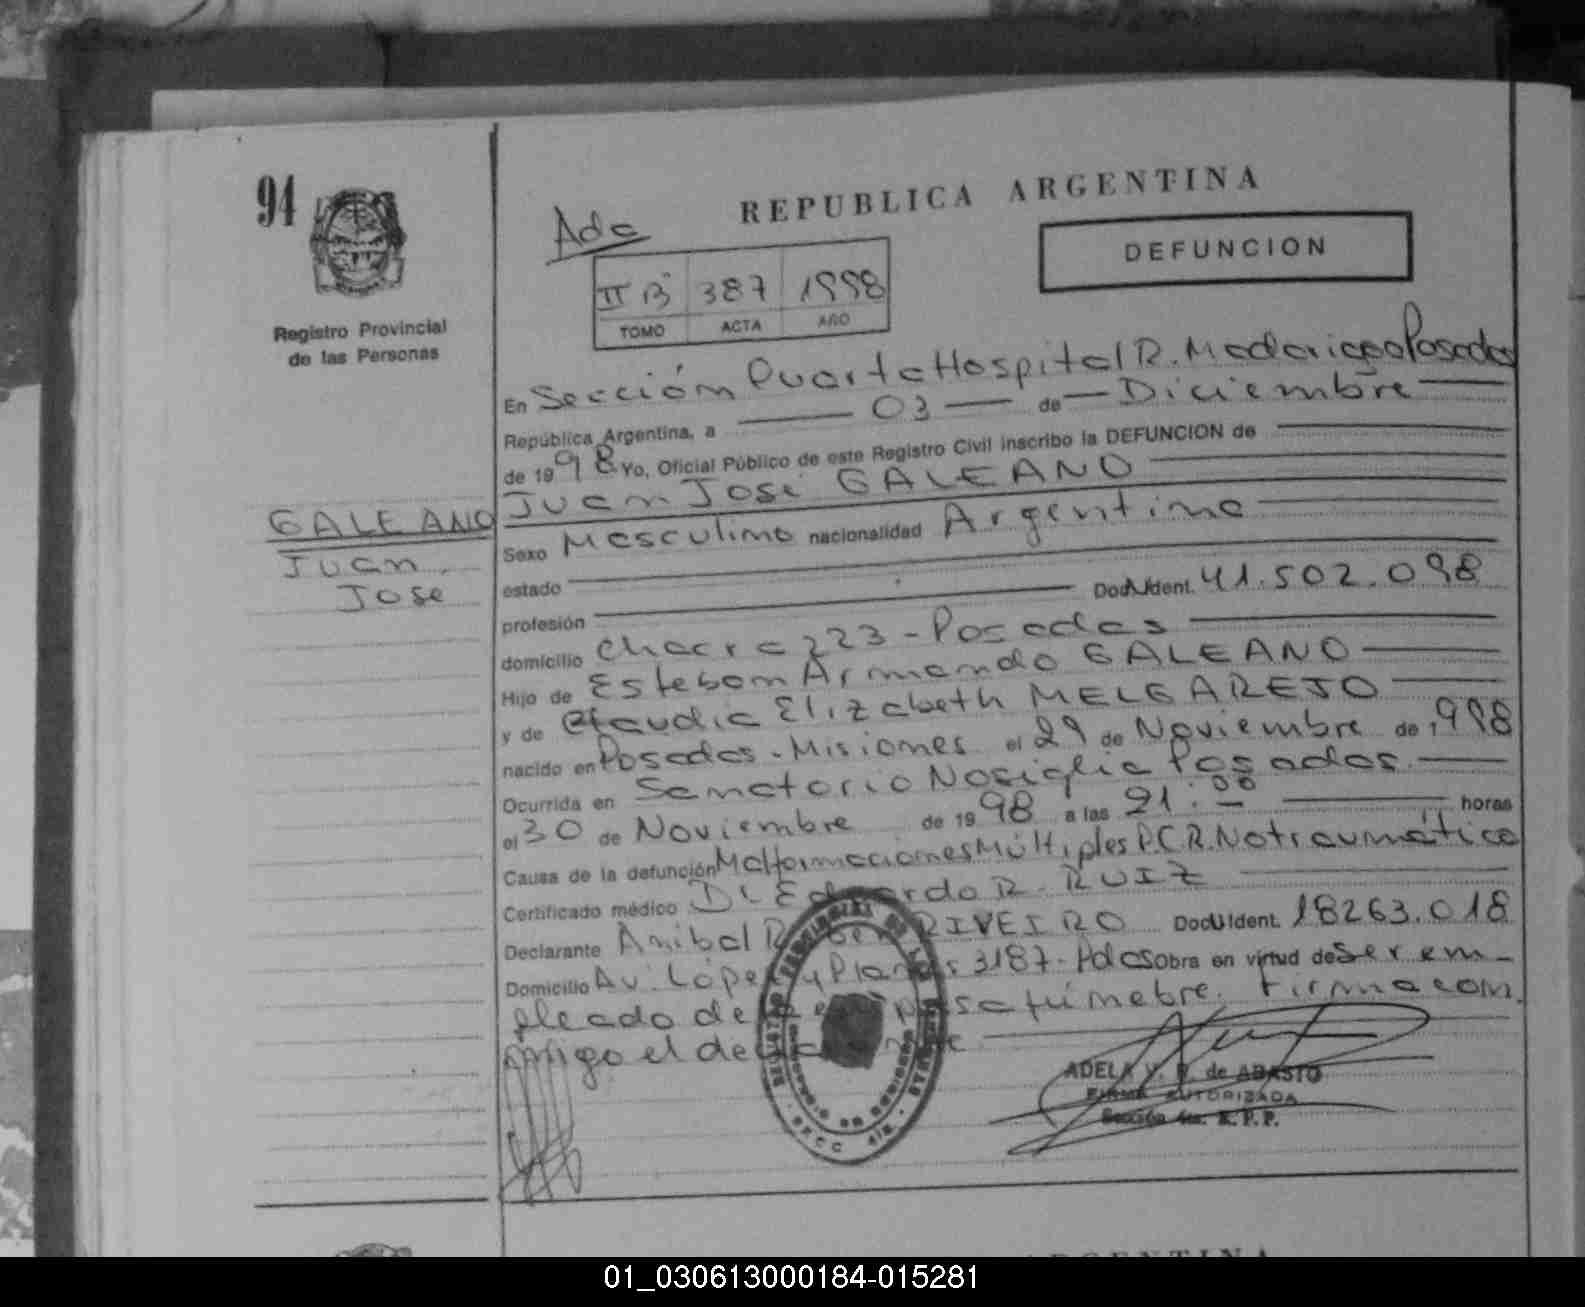 94
Registro Provincial
de las Personas
REPUBLICA ARGENTINA
Ada
DEFUNCION
II B 387 1998
TOMO ACTA AÑO
En Sección Cuarta Hospital R. Madariaga Posadas
República Argentina, a 03 de Diciembre
de 1998 Yo, Oficial Público de este Registro Civil inscribo la DEFUNCION de
Juan José GALEANO
GALEANO
Juan
Jose
Sexo Masculino nacionalidad Argentina
estado
profesión Doc. Ident. 41.502.098
domicilio Chacra 223 - Posadas
Hijo de Esteban Armando GALEANO
y de Claudia Elizabeth MELGAREJO
nacido en Posadas - Misiones el 29 de Noviembre de 1998
Ocurrida en Sanatorio Nosiglia Posadas
el 30 de Noviembre de 1998 a las 21:00 horas
Causa de la defunción Malformaciones Múltiples P.C.R. No traumática
Certificado médico Dr Eduardo R. RUIZ
Declarante Anibal Ruben RIVEIRO Doc. Ident. 18263.018
Domicilio Av. López y Planes 3187 - Pdas Obra en virtud de Ser em-
pleado de la fúnebre. Firma con
migo el declarante
ADELA V. de ABASTO
FIRMA AUTORIZADA
Sección 4ta. R. P. P.
ARGENTINA
01_030613000184-015281